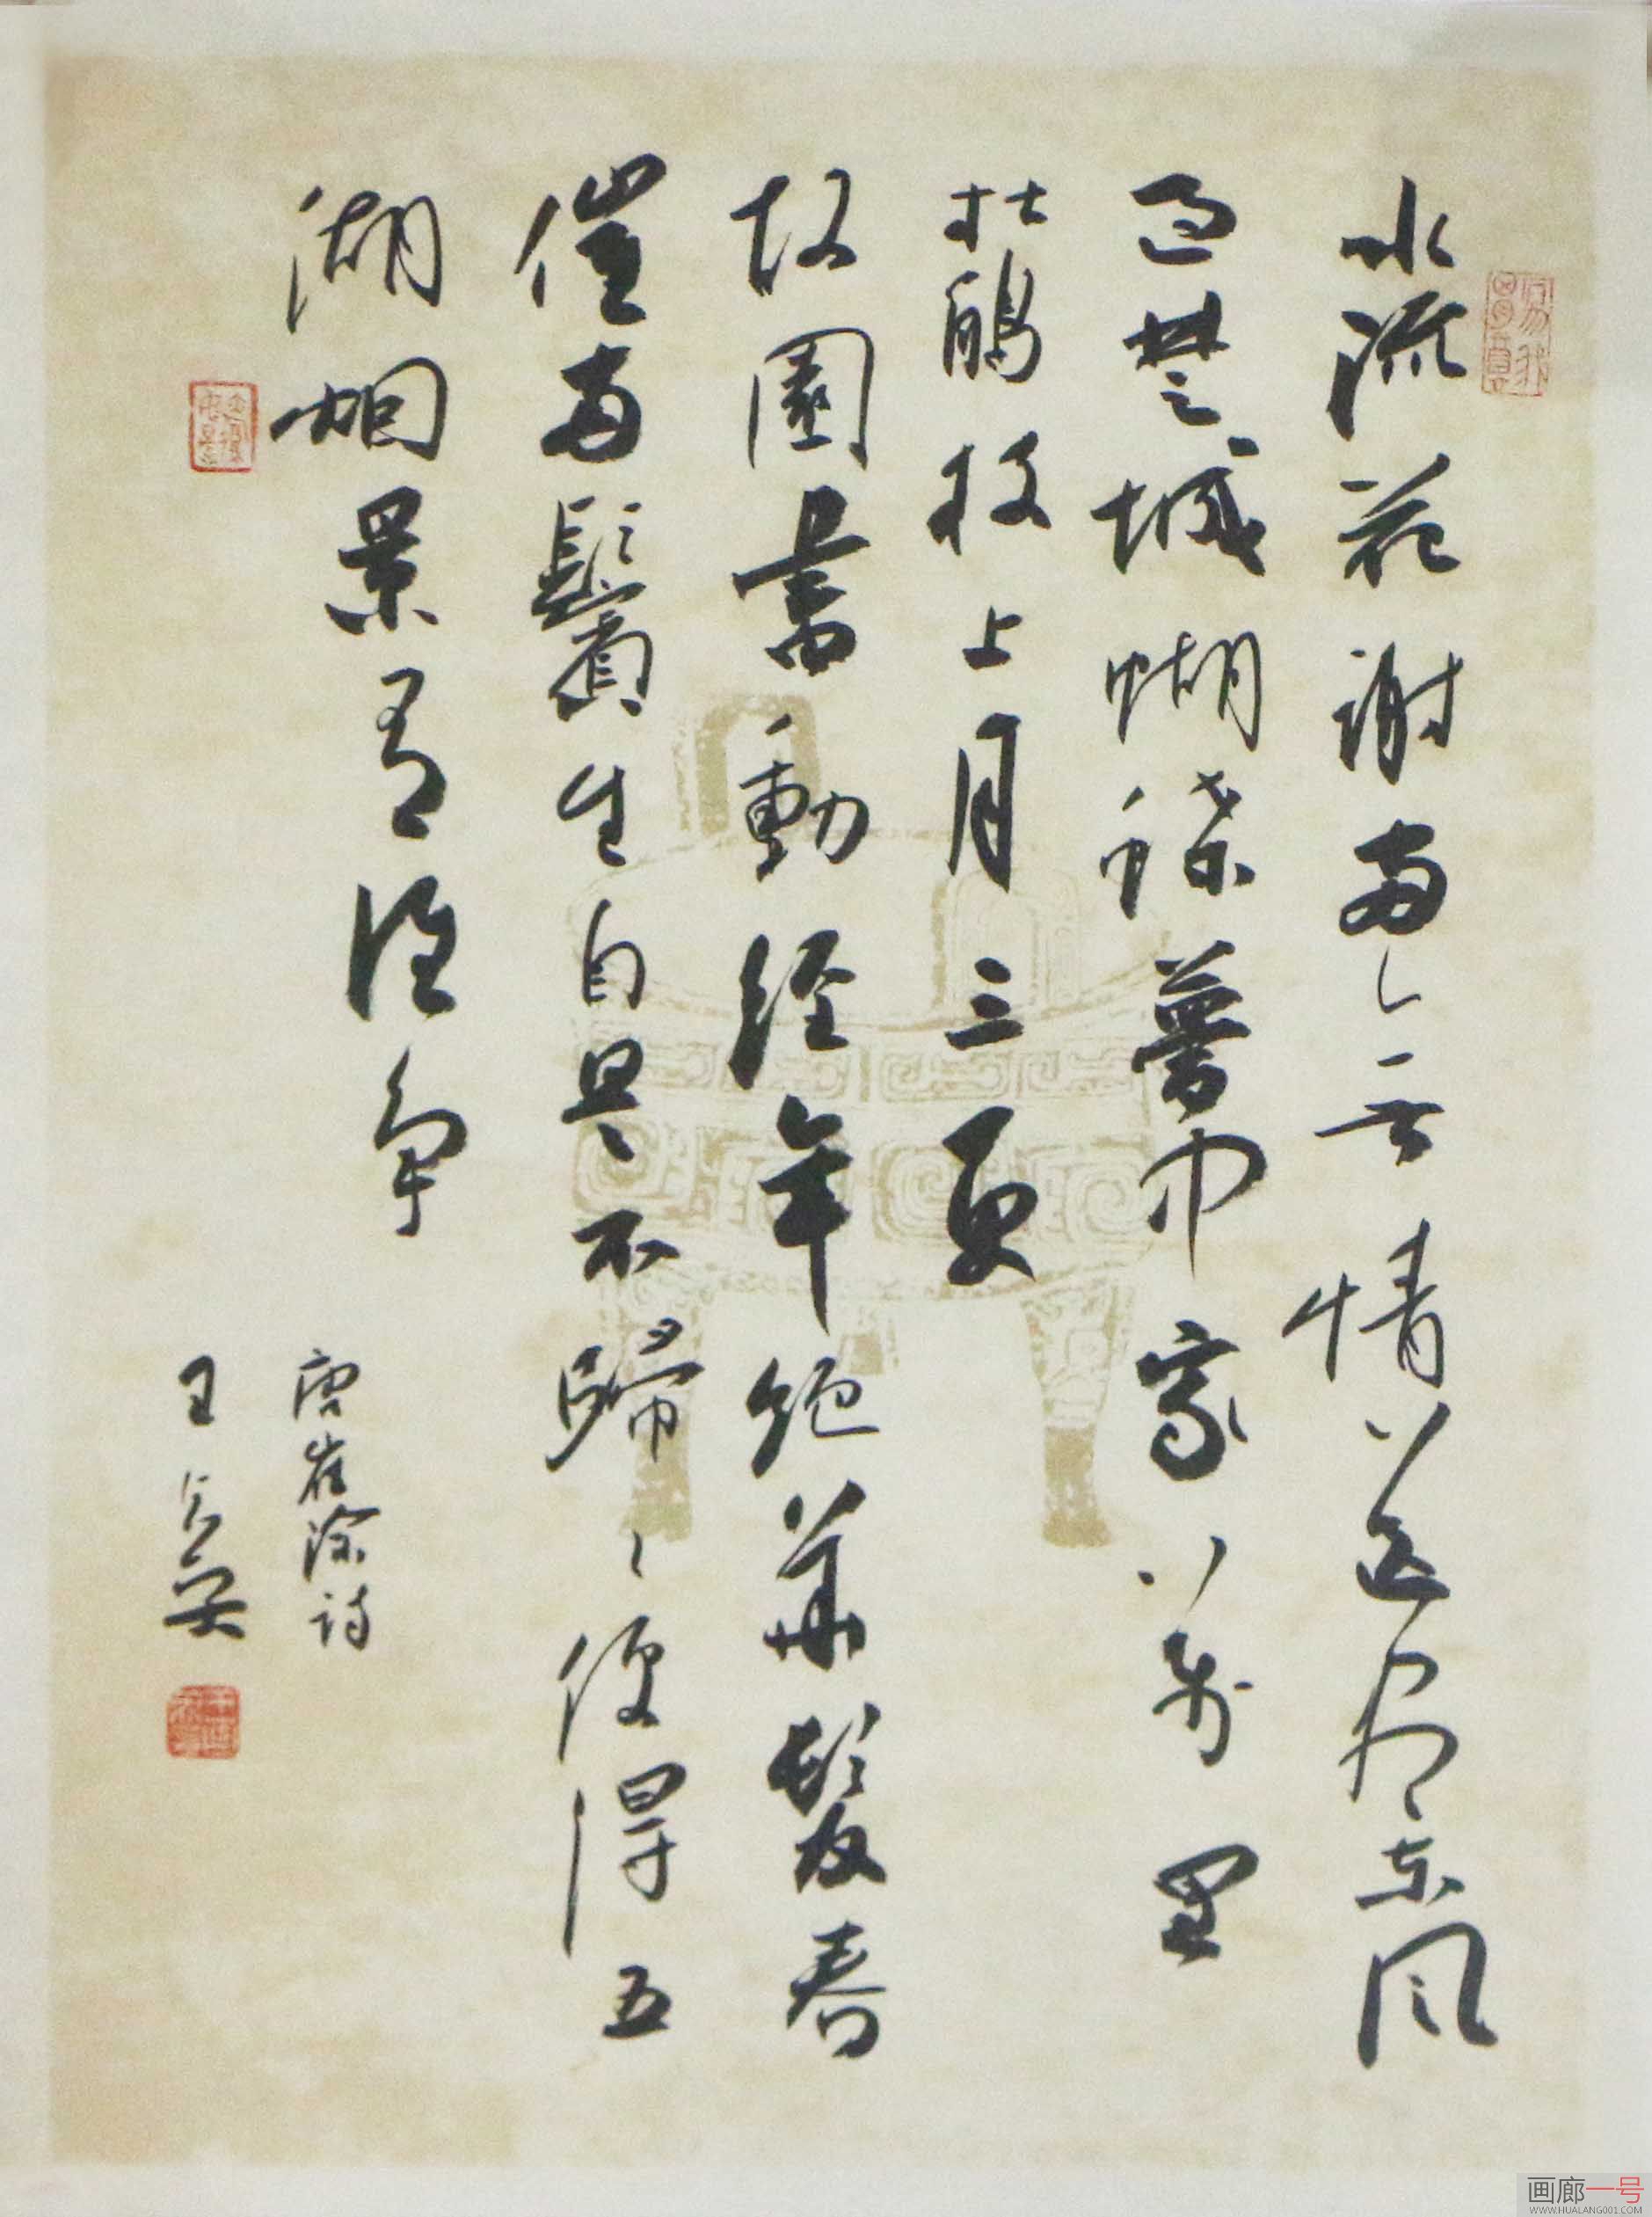 水流花謝兩无情送尽东风
过楚城蝴蝶夢中家萬里
杜鵑枝上月三更
故園書動经年绝華髮春
催兩鬢生自是不歸〻便得五
湖烟景有谁争
唐崔涂诗
王
画廊一号
WWW.HUALANG001.COM